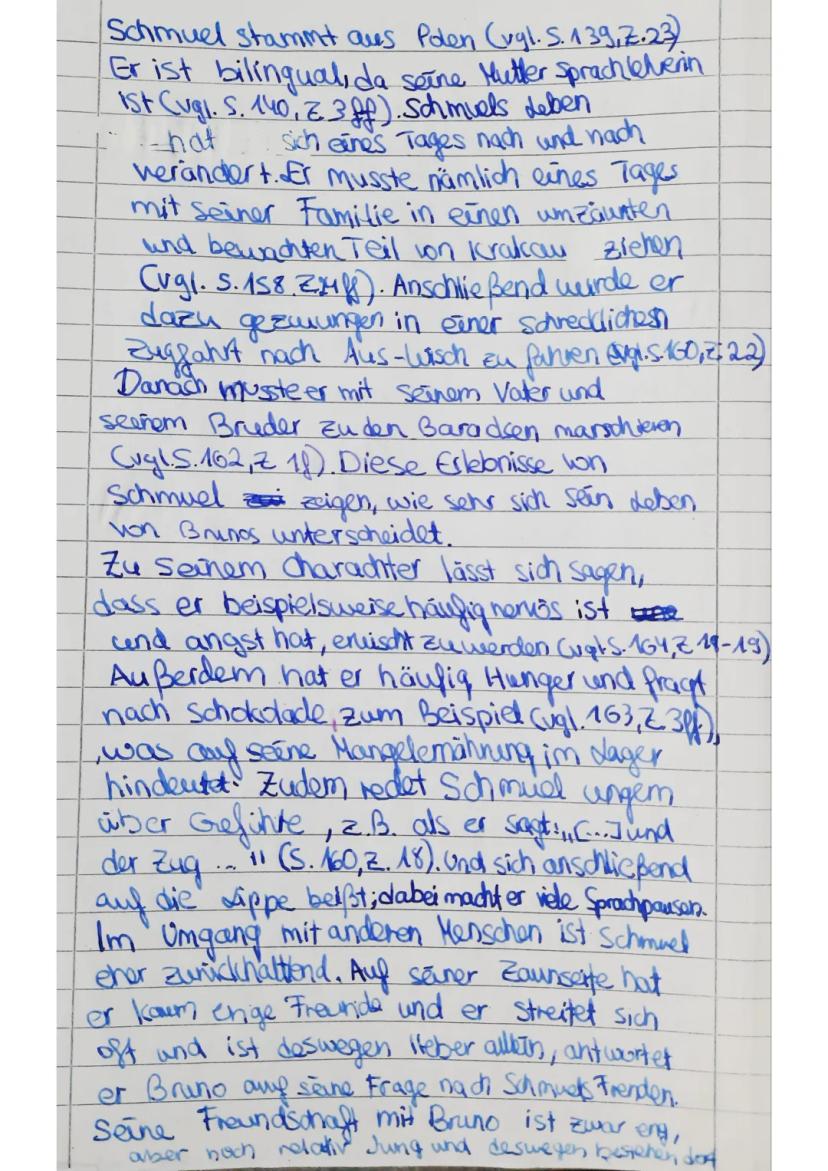 Schmuel stammt aus Polen (vgl. S. 139, Z. 23)
Er ist bilingual, da seine Mutter Sprachlehrerin
ist (vgl. S. 140, Z 3 ff). Schmuels Leben
hat sich eines Tages nach und nach
verändert. Er musste nämlich eines Tages
mit seiner Familie in einen umzäunten
und bewachten Teil von Krakau ziehen
(vgl. S. 158. Z ff). Anschließend wurde er
dazu gezwungen in einer schrecklichen
Zugfahrt nach Aus-Wisch zu fahren (vgl. S. 160, Z. 22)
Danach musste er mit seinem Vater und
seinem Bruder zu den Baracken marschieren
(vgl. S. 162, Z 1f). Diese Erlebnisse von
Schmuel zeigen, wie sehr sich sein Leben
von Brunos unterscheidet.
Zu seinem Charachter lässt sich sagen,
dass er beispielsweise häufig nervös ist
und angst hat, erwischt zu werden (vgl. S. 164, Z -19)
Außerdem hat er häufig Hunger und fragt
nach Schokolade, zum Beispiel (vgl. 163, Z. 3ff),
was auf seine Mangelernährung im Lager
hindeutet. Zudem redet Schmuel ungern
über Gefühle, z.B. als er sagt: „[...] und
der Zug ... " (S. 160, Z. 18). Und sich anschließend
auf die Lippe beißt; dabei macht er viele Sprachpausen.
Im Umgang mit anderen Menschen ist Schmuel
eher zurückhaltend. Auf seiner Zaunseite hat
er kaum enge Freunde und er streitet sich
oft und ist deswegen lieber allein, antwortet
er Bruno auf seine Frage nach Schmuels Frenden.
Seine Freundschaft mit Bruno ist zwar eng,
aber noch relativ Jung und deswegen bestehen dort